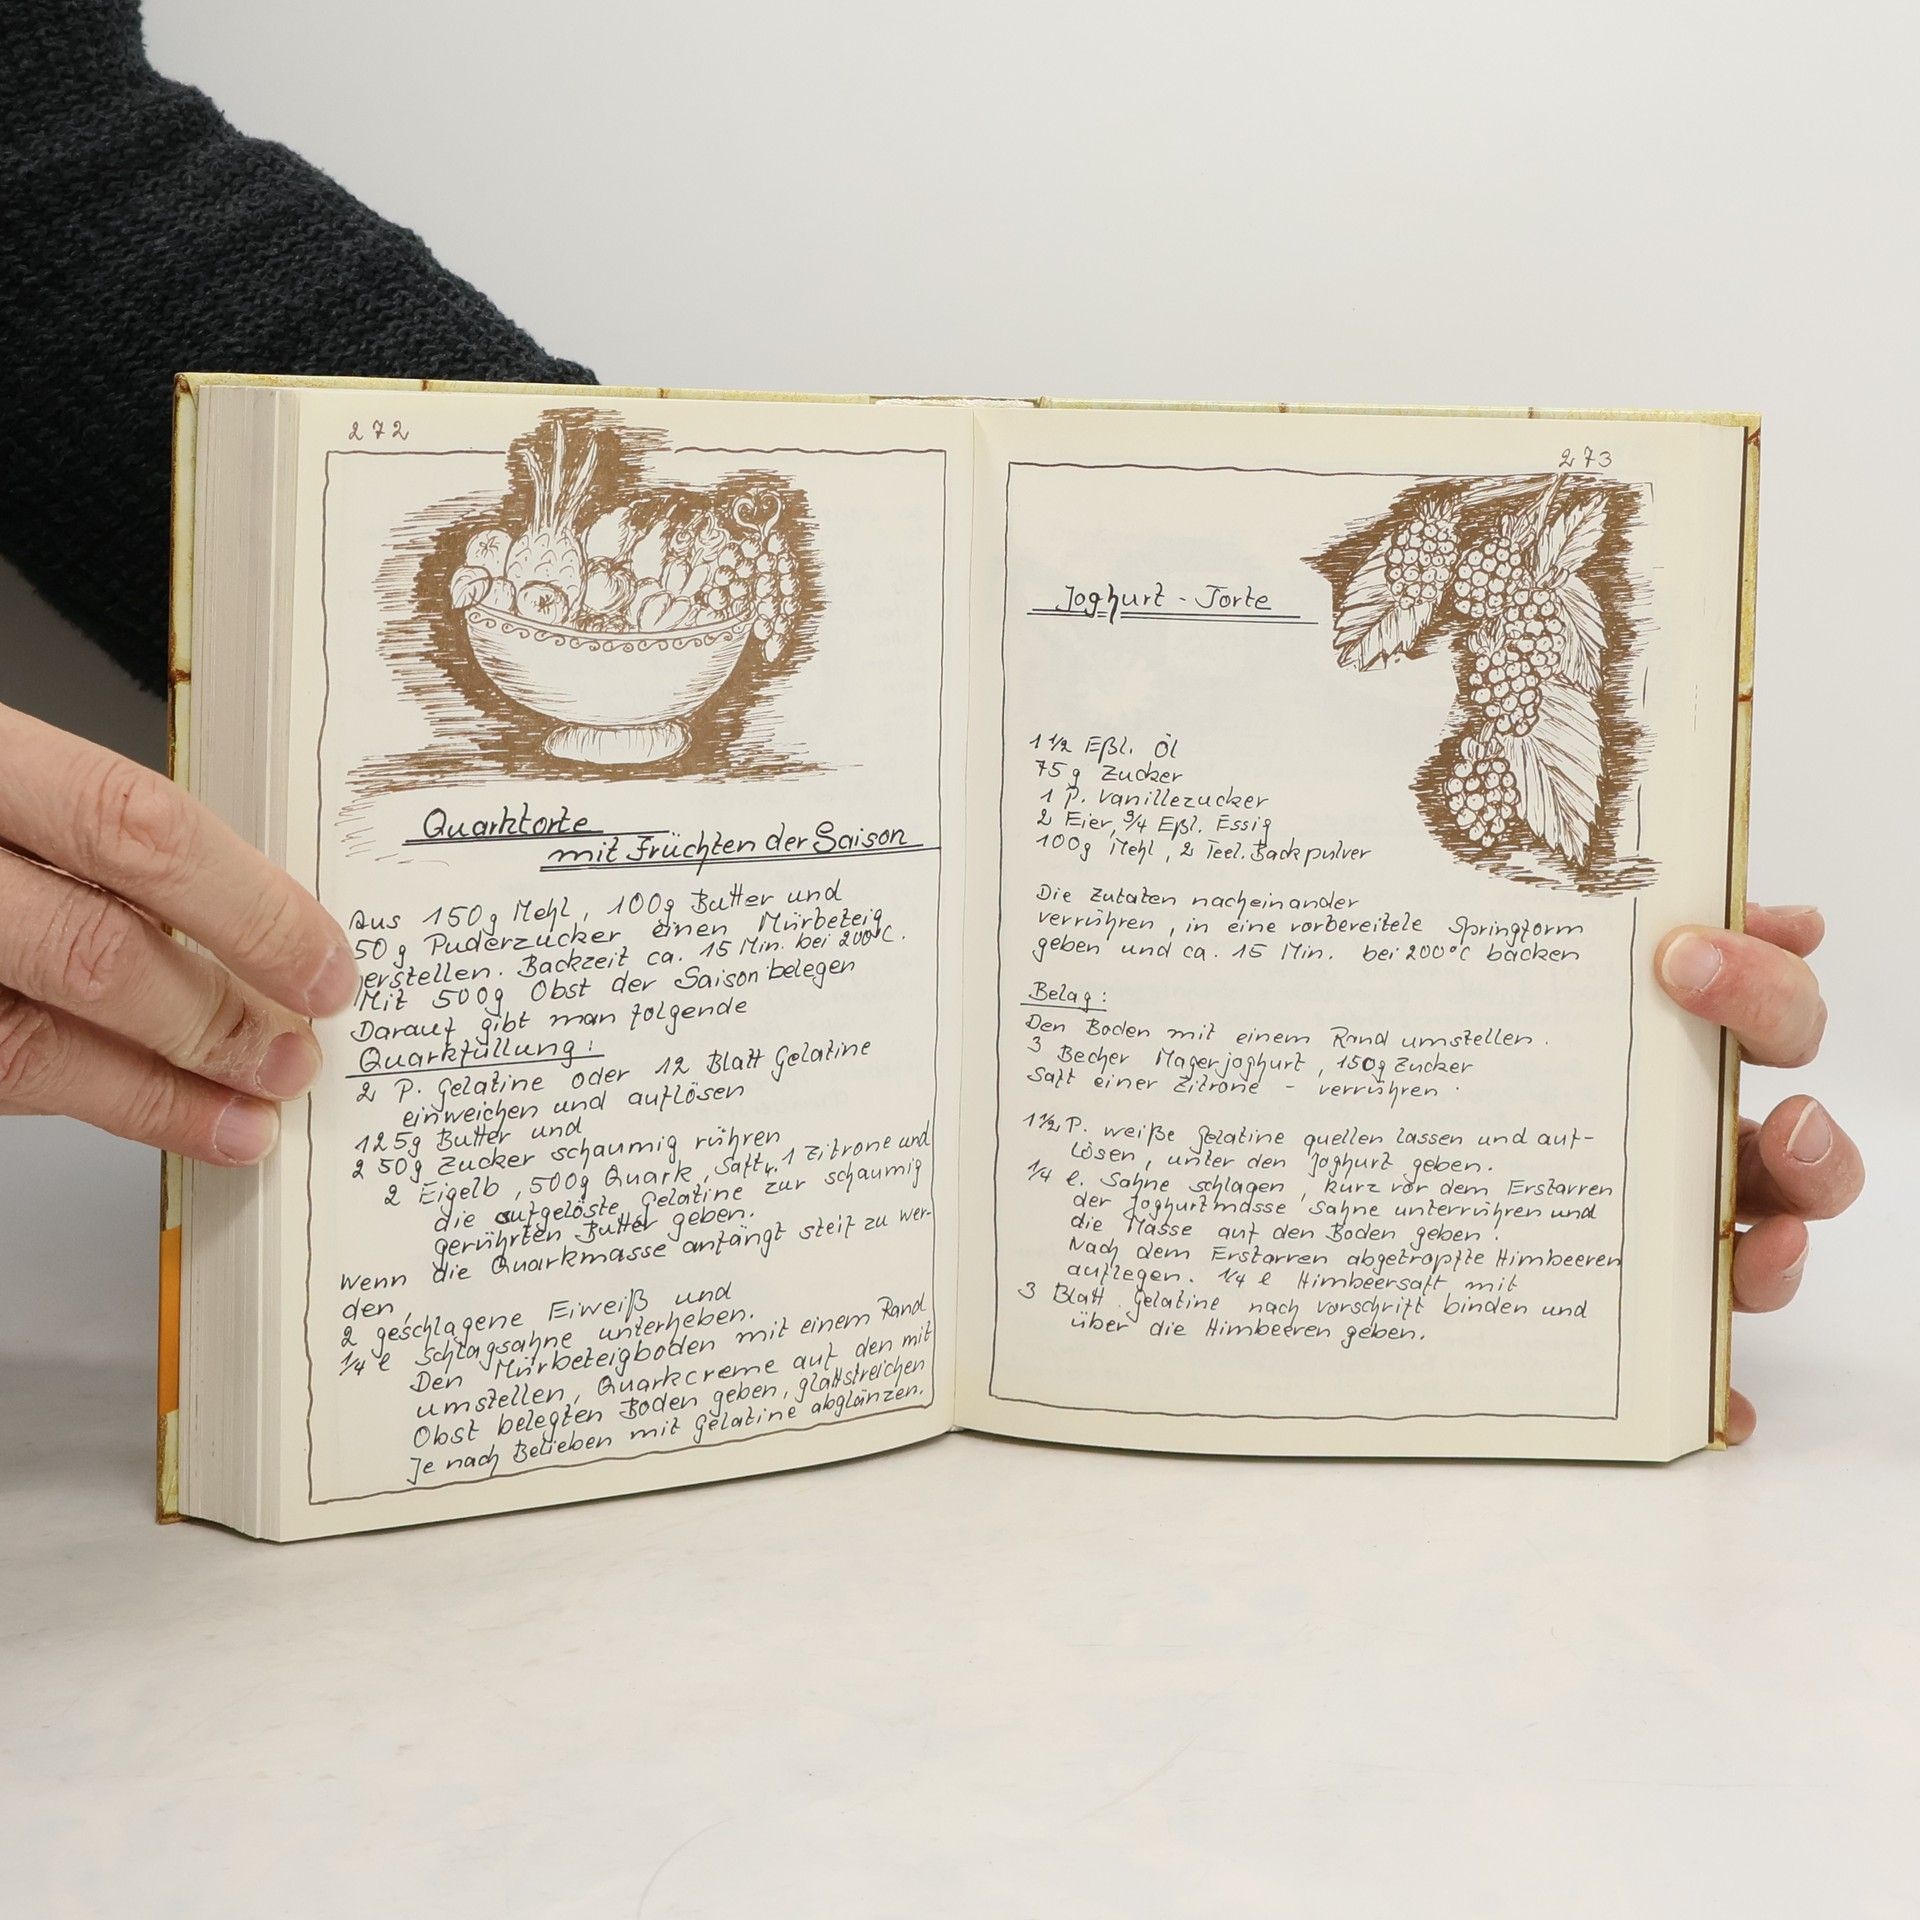 272
Quarktorte
mit Früchten der Saison
Aus 150g Mehl, 100g Butter und
50g Puderzucker einen Mürbeteig
erstellen. Backzeit ca. 15 Min. bei 200°C.
Mit 500g Obst der Saison belegen
Darauf gibt man folgende
Quarkfüllung:
2 P. Gelatine oder 12 Blatt Gelatine
einweichen und auflösen
125g Butter und
250g Zucker schaumig rühren
2 Eigelb, 500g Quark, Saft v. 1 Zitrone und
die aufgelöste Gelatine zur schaumig
gerührten Butter geben.
Wenn die Quarkmasse anfängt steif zu wer-
den,
2 geschlagene Eiweiß und
1/4 l Schlagsahne unterheben.
Den Mürbeteigboden mit einem Rand
umstellen, Quarkcreme auf den mit
Obst belegten Boden geben, glattstreichen
Je nach Belieben mit Gelatine abglänzen.
273
Joghurt - Torte
1 1/2 Eßl. Öl
75g Zucker
1 P. Vanillezucker
2 Eier, 3/4 Eßl. Essig
100g Mehl, 2 Teel. Backpulver
Die Zutaten nacheinander
verrühren, in eine vorbereitele Springform
geben und ca. 15 Min. bei 200°C backen
Belag:
Den Boden mit einem Rand umstellen.
3 Becher Magerjoghurt, 150g Zucker
Saft einer Zitrone - verrühren.
1 1/2 P. weiße Gelatine quellen lassen und auf-
lösen, unter den Joghurt geben.
1/4 l. Sahne schlagen, kurz vor dem Erstarren
der Joghurtmasse Sahne unterrühren und
die Masse auf den Boden geben.
Nach dem Erstarren abgetropfte Himbeeren
auflegen. 1/4 l Himbeersaft mit
3 Blatt Gelatine nach Vorschrift binden und
über die Himbeeren geben.